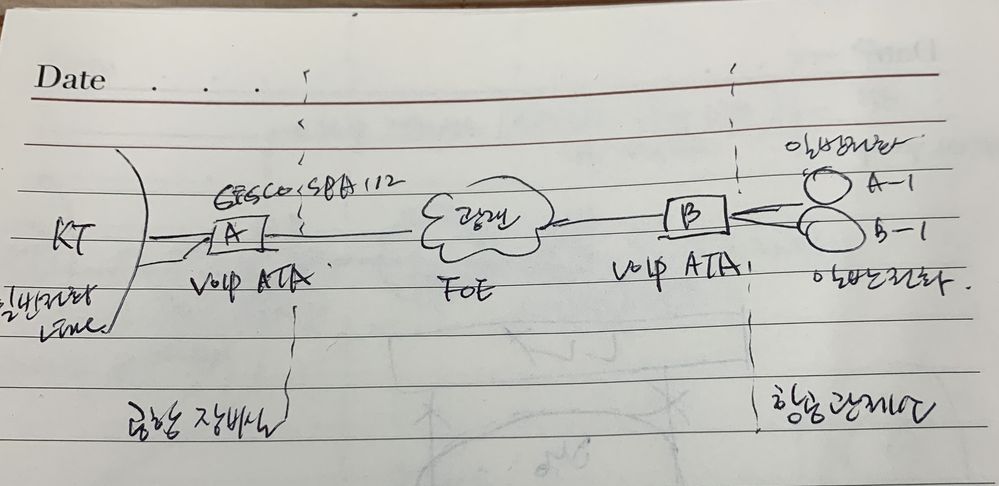 Date . . .
일반전화
CISCO SPA112
A-1
KT
A
광랜
B
B-1
VoIP ATA.
FOE
VoIP ATA.
일반전화.
일반전화
Line.
공항 장비실
항공관제소